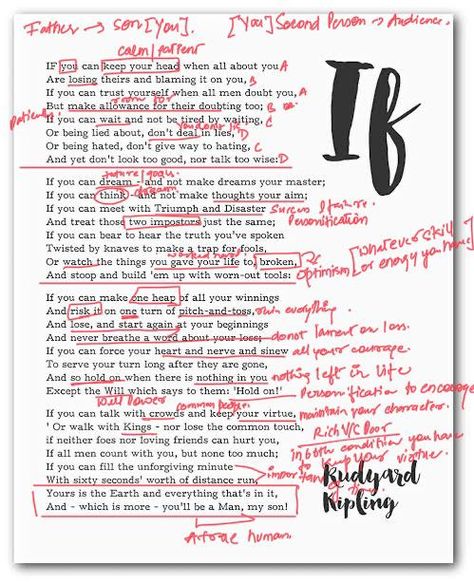 Father → son [You].
[You] Second Person → Audience.
If
calm/patient
IF you can keep your head when all about you A
Are losing theirs and blaming it on you, B
If you can trust yourself when all men doubt you, A
room for
But make allowance for their doubting too; B
If you can wait and not be tired by waiting, C
Or being lied about, don't deal in lies, D
Or being hated, don't give way to hating, C
And yet don't look too good, nor talk too wise: D
future/goals
If you can dream - and not make dreams your master;
dream
If you can think - and not make thoughts your aim;
If you can meet with Triumph and Disaster
Success / failure.
And treat those two impostors just the same;
Personification
If you can bear to hear the truth you've spoken
Twisted by knaves to make a trap for fools,
[Whatever skill
worked hard
Or watch the things you gave your life to, broken,
or energy you have]
And stoop and build 'em up with worn-out tools:
optimism
If you can make one heap of all your winnings
And risk it on one turn of pitch-and-toss,
everything.
And lose, and start again at your beginnings
And never breathe a word about your loss;
do not lament on loss.
If you can force your heart and nerve and sinew
all your courage
To serve your turn long after they are gone,
And so hold on when there is nothing in you
nothing left in life
Except the Will which says to them: 'Hold on!'
Personification to encourage
Will Power
common people.
If you can talk with crowds and keep your virtue,
maintain your character.
' Or walk with Kings - nor lose the common touch,
Rich V/s Poor
if neither foes nor loving friends can hurt you,
in both condition you have
If all men count with you, but none too much;
to keep your virtue.
If you can fill the unforgiving minute
With sixty seconds' worth of distance run,
importance
of time.
Yours is the Earth and everything that's in it,
And - which is more - you'll be a Man, my son!
Rudyard
Kipling
A true human.